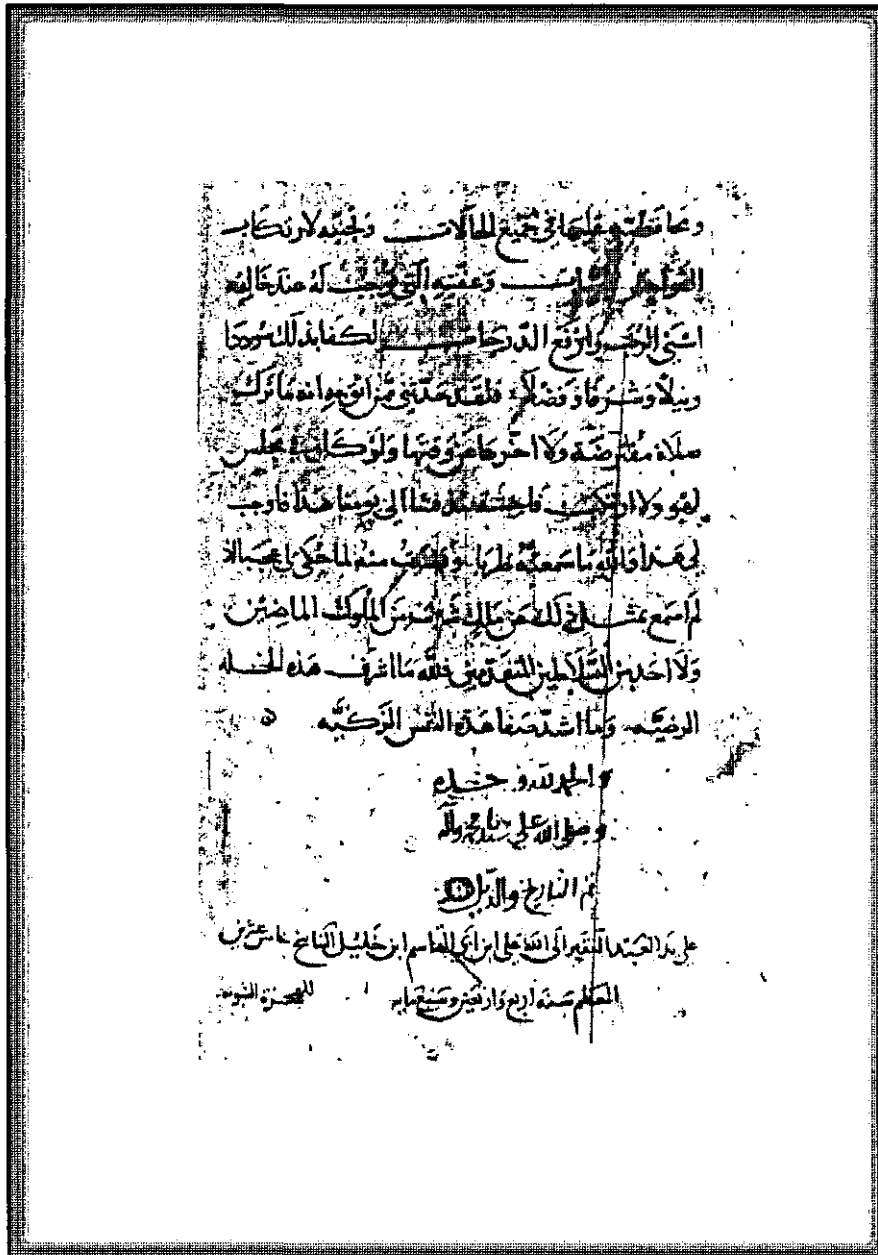 ومحافظته عليها في جميع الحالات وتجنبه لارتكاب
الفواحش وعفته التي توجب له عند خالقه
اسنى الرتب وارفع الدرجات لكفا بذلك سوددا
ونبلا وشرفا وفضلا فلقد حدثني من اثق به انه ما ترك
صلاة مفترضة ولا اخرها عن وقتها ولو كان في مجلس
لهو ولا ارتكب فاحشة الى يومنا هذا فاوجب
لي هذا والله ما سمعته طربا منه لما حكي لي عجبا لا
لم اسمع بمثل ذلك عن ملك من الملوك الماضين
ولا احد من السلاطين المتقدمين فلله ما اشرف هذه الخله
الرضيه وما اشد صفا هذه النفس الزكيه
والحمد لله وحده
وصلى الله على سيدنا محمد وآله
تم التاريخ والذيل
على يد العبد الفقير الى الله علي ابن ابي القاسم ابن خليل الناسخ خامس عشرين
المعظم سنه اربع واربعين وسبع مايه للهجرة النبويه